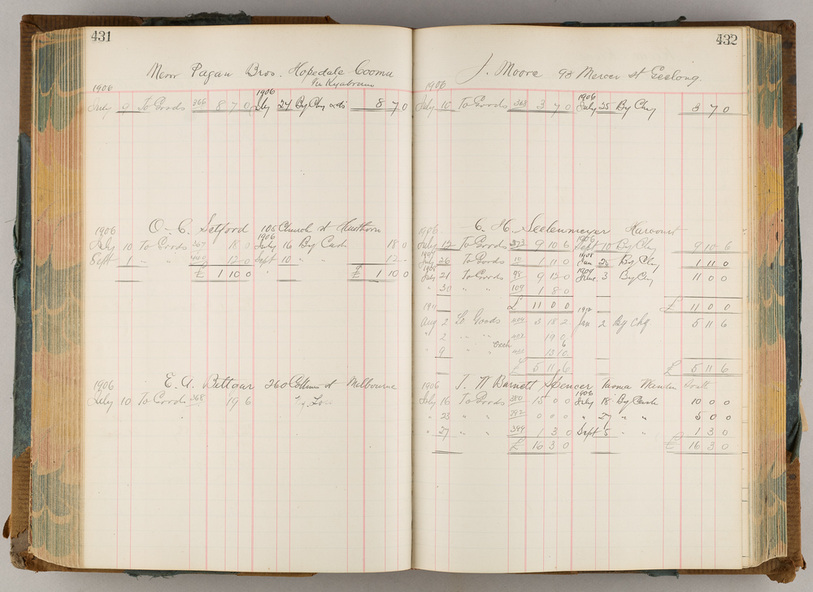 431
Pagan Bros. Hopedale Cooma
Kyabram
1906 1906
July 9 To Goods 366 8 7 0 July 24 By Chq 8 7 0
1906 O. C. Setford 105 Church St Hawthorn
1906
July 10 To Goods 367 18 0 July 16 By Cash 18 0
Sept 1 " " 12 0 Sept 10 " 12
£ 1 10 0 £ 1 10 0
1906 E. A. 260 Collins St Melbourne
July 10 To Goods 368 19 6 Loss
432
J. Moore 98 Mercer St Geelong
1906 1906
July 10 To Goods 368 3 7 0 July 25 By Chq 3 7 0
1906 C. H. Seelenmeyer Harcourt
1906
July 12 To Goods 372 9 10 6 Sept 10 By Chq 9 10 6
1907 1908
July 26 To Goods 1 11 0 Jan By Chq 1 11 0
1908 1909
July 21 To Goods 98 9 12 0 3 By Chq 11 0 0
" 30 " " 109 1 8 0
190 £ 11 0 0 £ 11 0 0
Aug 2 To Goods 5 Jan 2 By Chq 5 11 6
2 " " 19
9 " Cash
£ 5 11 6 £ 5 11 6
1906 T. N. Burnett Spencer Moona
1906
July 16 To Goods 380 July 18 By Cash 10 0 0
" 23 " " 392 " 27 " " 5 0 0
" 27 " " 399 1 3 0 Sept 5 " " 1 3 0
£ 16 3 0 £ 16 3 0